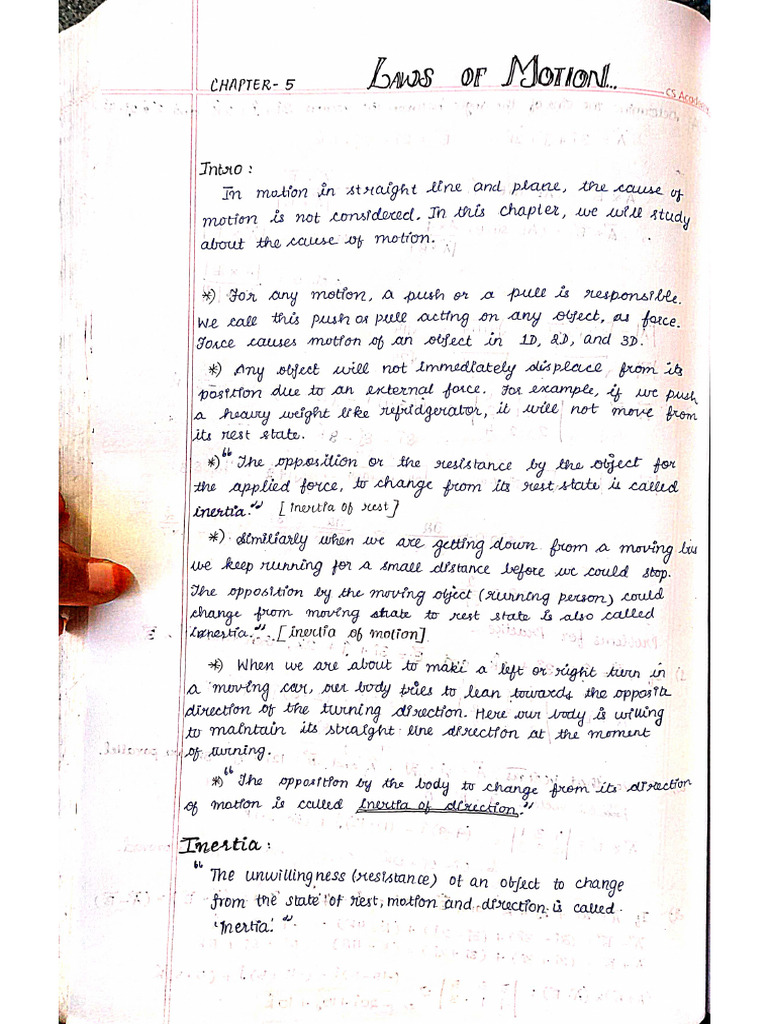 CHAPTER- 5 LAWS OF MOTION..
CS Acade
Intro :
In motion in straight line and plane, the cause of
motion is not considered. In this chapter, we will study
about the cause of motion.
*) For any motion, a push or a pull is responsible.
We call this push or pull acting on any object, as force.
Force causes motion of an object in 1D, 2D, and 3D.
*) Any object will not immediately displace from its
position due to an external force. For example, if we push
a heavy weight like refridgerator, it will not move from
its rest state.
*) “ The opposition or the resistance by the object for
the applied force, to change from its rest state is called
inertia.” [inertia of rest]
*) Similiarly when we are getting down from a moving bus
we keep running for a small distance before we could stop.
The opposition by the moving object (running person) could
change from moving state to rest state is also called
inertia.” [inertia of motion]
*) When we are about to make a left or right turn in
a moving car, our body tries to lean towards the opposite
direction of the turning direction. Here our body is willing
to maintain its straight line direction at the moment
of turning.
*) “ The opposition by the body to change from its direction
of motion is called inertia of direction.”
Inertia :
“ The unwillingness (resistance) of an object to change
from the state of rest, motion and direction is called
'Inertia.' ”